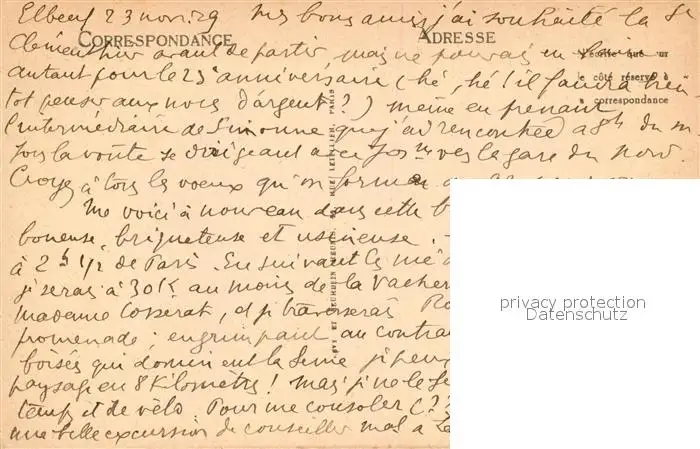 Elbeuf 23 nov. 29 Mes bons amis, j'ai souhaité la Ste
Clément hier avant de partir, mais ne pouvais en faire
CORRESPONDANCE
ADRESSE
autant pour le 25e anniversaire (hé, hé ! il faudra bien
N'écrire que sur
le côté réservé à
la correspondance
tôt penser aux noces d'argent ?) même en prenant
l'intermédiaire de Simonne que j'ai rencontrée à 8h du m
sous la voûte se dirigeant avec vers la gare du Nord.
Croyez à tous les voeux qu'on forme
Me voici à nouveau dans cette
boueuse, briqueteuse et usineuse.
à 2h 1/2 de Paris. En suivant les mê
je serais à 30K au moins de la Vacher
madame Cosserat, et je traverserais Ro
promenade ; en grimpant au contra
boisés qui dominent la Seine je peux
paysage en 8 kilomètres ! mais je ne le
temps et de vélo. Pour me consoler (?)
une belle excursion de conseiller mal à
PARIS
privacy protection
Datenschutz